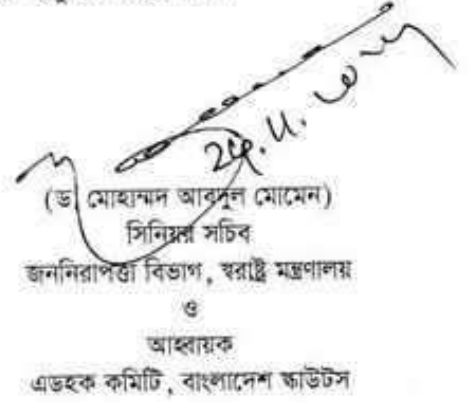 (ড. মোহাম্মদ আবদুল মোমেন)
সিনিয়র সচিব
জননিরাপত্তা বিভাগ, স্বরাষ্ট্র মন্ত্রণালয়
ও
আহবায়ক
এডহক কমিটি, বাংলাদেশ স্কাউটস